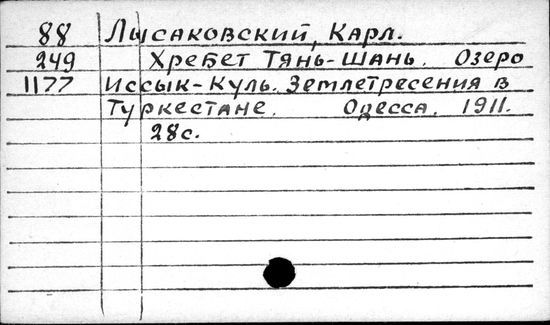 88 Лысаковский, Карл.
249 Хребет Тянь-Шань. Озеро
1177 Иссык-Куль. Землетресения в
Туркестане. Одесса, 1911.
28с.